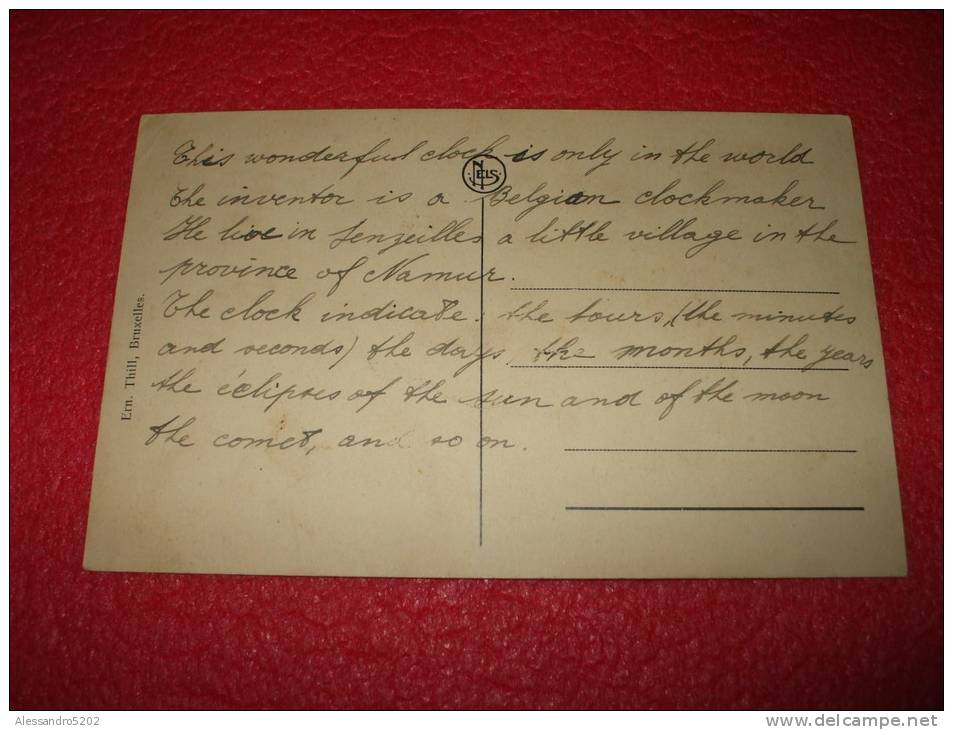 This wonderful clock is only in the world
NELS
The inventor is a Belgian clockmaker
He live in Senzeilles a little village in the
province of Namur.
The clock indicate: the hours, (the minutes
and seconds) the days, the months, the years
the éclipses of the sun and of the moon
the comet, and so on.
Ern. Thill, Bruxelles.
Alessandro5202
www.delcampe.net